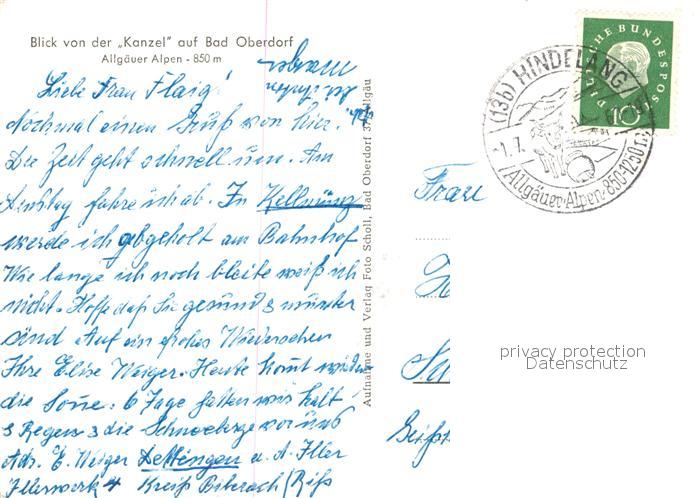 Blick von der „Kanzel" auf Bad Oberdorf
Allgäuer Alpen - 850 m
Liebe Frau Flaig!
Nochmal einen Gruß von hier.
Die Zeit geht schnell um. Am
Dinstag fahre ich ab. In Kellmünz
werde ich abgeholt am Bahnhof
Wie lange ich noch bleibe weiß ich
nicht. Hoffe daß Sie gesund & munter
sind Auf ein frohes Wiedersehen
Ihre Elise Weiger. Heute komt wieder
die Sonne: 6 Tage hatten wir kalt
& Regen & die Schneeberge vor uns
Adr. E. Weiger Dettingen a. d. Iller
Illerwerk 4 Kreiß Biberach/Riß
Aufnahme und Verlag Foto Scholl, Bad Oberdorf 37 Allgäu
(13b) HINDELANG
-1.7.
Allgäuer Alpen-850-1250 m
DEUTSCHE BUNDESPOST
10
Frau
privacy protection
Datenschutz